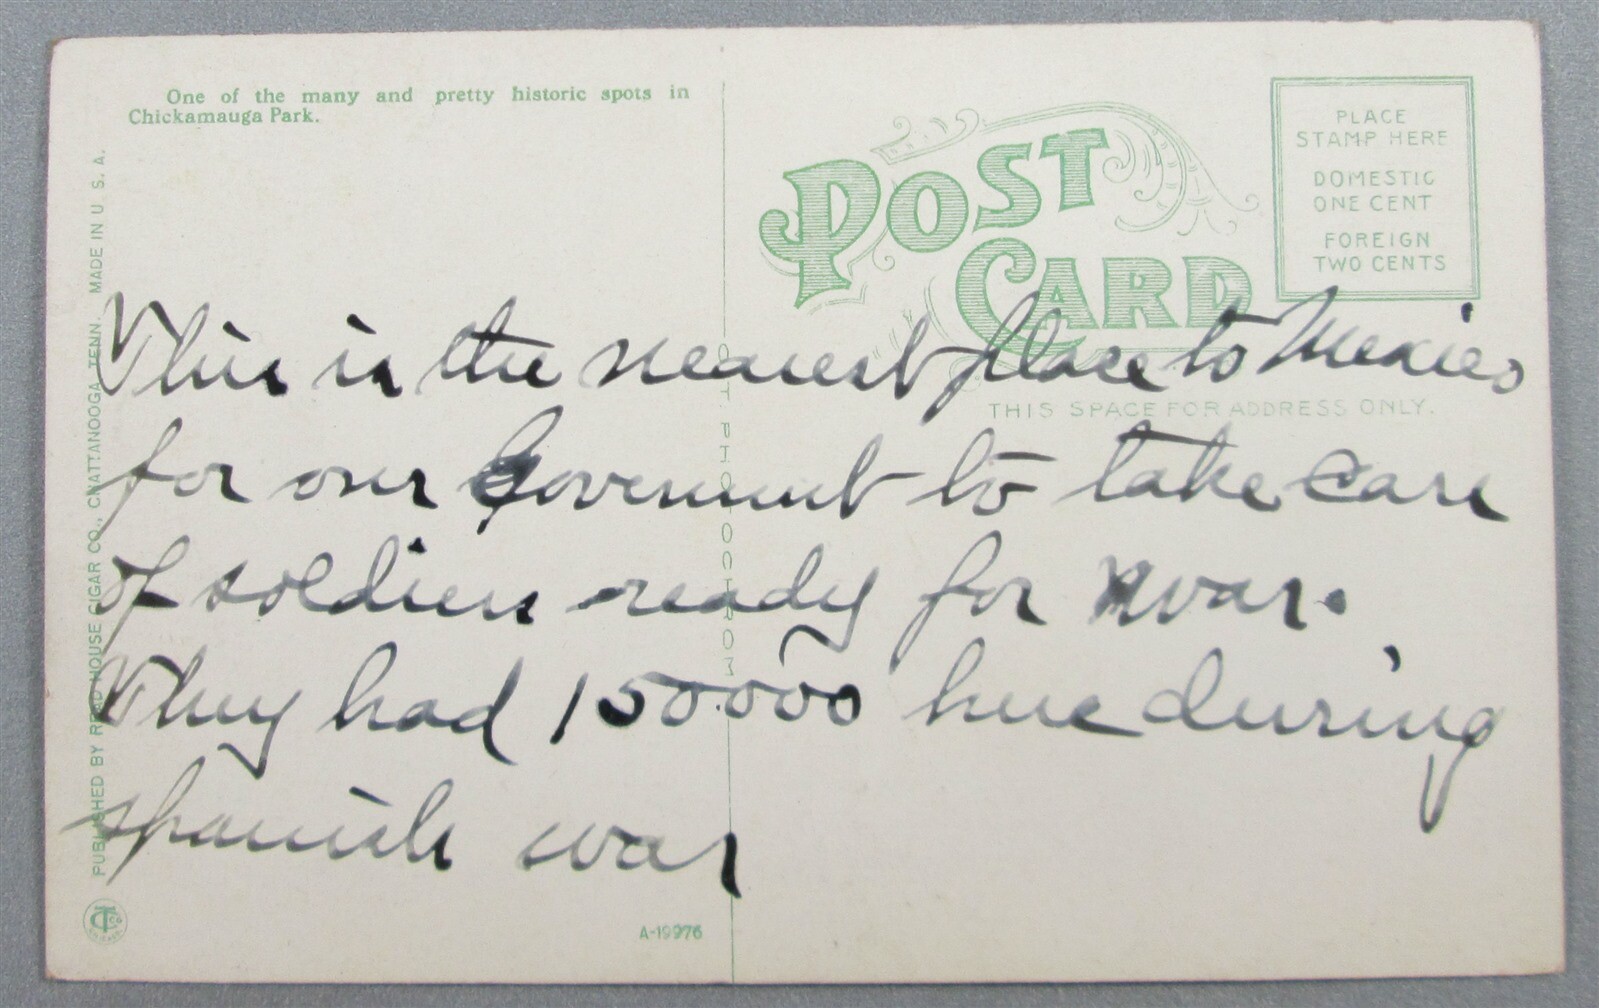 One of the many and pretty historic spots in
Chickamauga Park.
POST
CARD
PLACE
STAMP HERE
DOMESTIC
ONE CENT
FOREIGN
TWO CENTS
THIS SPACE FOR ADDRESS ONLY.
This is the nearest place to Mexico
for our Goverment to take care
of soldiers ready for war.
They had 150000 here during
spanish war
PUBLISHED BY READ HOUSE CIGAR CO., CHATTANOOGA, TENN. MADE IN U. S. A.
A-19976